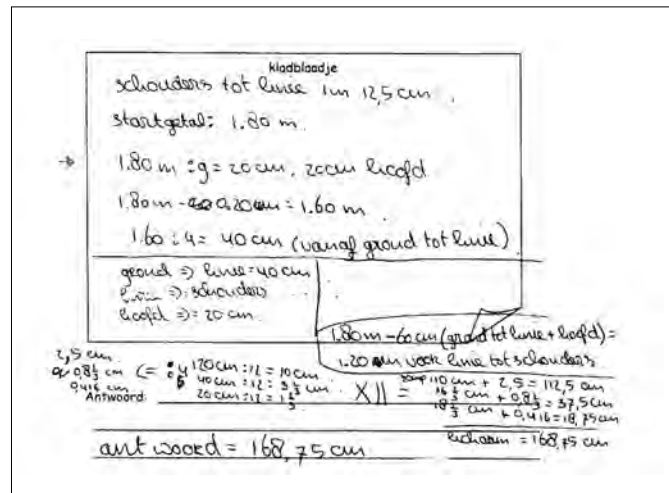 kladblaadje
schouders tot knie 1m 12,5 cm.
startgetal: 1.80 m.
→ 1.80 m : 9 = 20 cm. 20cm hoofd
1.80m - 0.20 = 1.60 m.
1.60 : 4 = 40 cm (vanaf grond tot knie)
grond => knie = 40 cm
knie => schouders
hoofd => = 20 cm.
1.80m - 60 cm (grond tot knie + hoofd) =
1.20 voor knie tot schouders
2,5 cm
0,8⅓ cm
0,416 cm
<= : 4
120cm : 12 = 10cm
40cm : 12 = 3⅓ cm
20cm : 12 = 1⅔
X 11 =
110 cm + 2,5 = 112,5 cm
cm + 0,8⅓ = 37,5 cm
18⅓ cm + 0,416 = 18,75 cm
Antwoord:
lichaam = 168,75 cm
antwoord = 168,75 cm